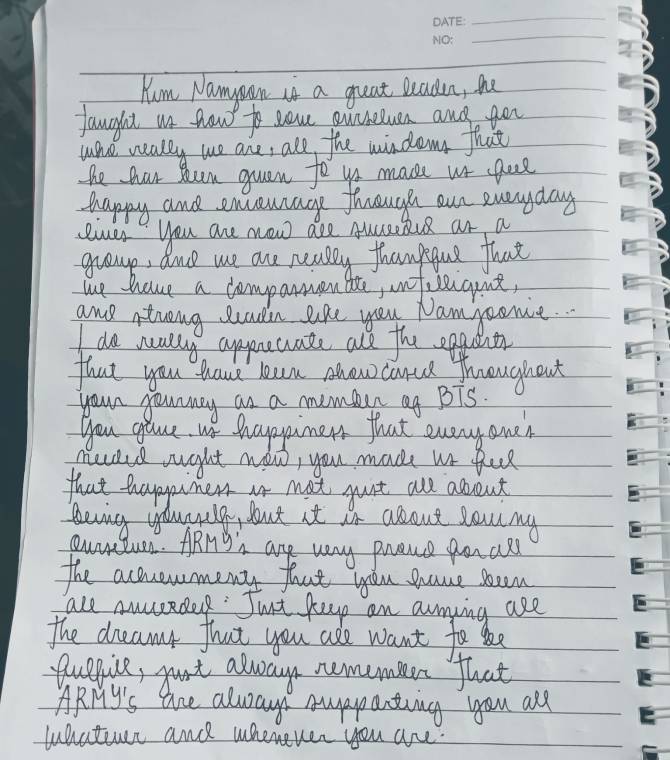 DATE:
NO:
Kim Namjoon is a great leader, he
taught us how to love ourselves and for
who really we are, all the wisdoms that
he has been given to us made us feel
happy and encourage through our everyday
lives. You are now all succeeded as a
group, and we are really thankful that
we have a compassionate, intelligent,
and strong leader like you Namjoonie...
I do really appreciate all the efforts
that you have been showcased throughout
your journey as a member of BTS.
You gave us happiness that everyone's
needed right now, you made us feel
that happiness is not just all about
being yourself, but it is about loving
ourselves. ARMY's are very proud for all
the achievements that you have been
all succeeded. Just keep on aiming all
the dreams that you all want to be
fulfill, just always remember that
ARMY's are always supporting you all
whatever and whenever you are.